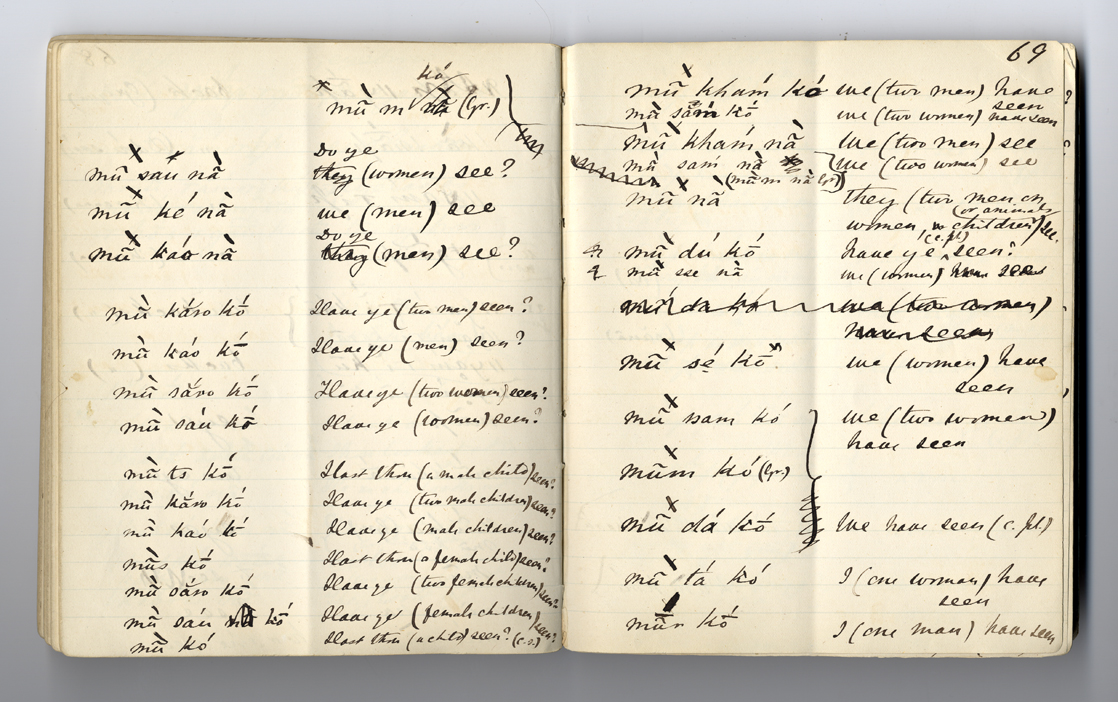 kó
× mū̀ m (lyr.)
mū̀ sáú nà̄ Do ye (women) see?
mū̀ ké nà̄ we (men) see
mū̀ káó nà̄ Do ye (men) see?
mū̀ káro kṓ Have ye (two men) seen?
mū̀ káó kṓ Have ye (men) seen?
mū̀ sāro kṓ Have ye (two women) seen?
mū̀ sáú kṓ Have ye (women) seen?
mū̀ ts kṓ Hast thou (a male child) seen?
mū̀ kāro kṓ Have ye (two male children) seen?
mū̀ káó kṓ Have ye (male children) seen?
mū̀s kṓ Hast thou (a female child) seen?
mū̀ sāro kṓ Have ye (two female children) seen?
mū̀ sáú kṓ Have ye (female children) seen?
mū̀ kó Hast thou (a child) seen? (c.s.)
69
mū̀ khaḿ kó we (two men) have seen
mū̀ saḿ kṓ we (two women) have seen
mū̀ khaḿ nà̄ we (two men) see
mū̀ saḿ nà̄ we (two women) see
(mū̀ m nà̄ lyr.)
mū̀ nà̄ they (two men, or
(or animals)
women, or children) see.
mū̀ dú kṓ have ye (c. pl.) seen?
mū̀ sse nà̄ we (women) see
mū̀ dá kó we (two women)
have seen
mū̀ sé kṓ we (women) have
seen
mū̀ sam kó we (two women)
have seen
mū̀m kó (lyr.)
mū̀ dá kṓ We have seen (c. pl.)
mū̀ tá kó I (one woman) have
seen
mū̀r kṓ I (one man) have seen